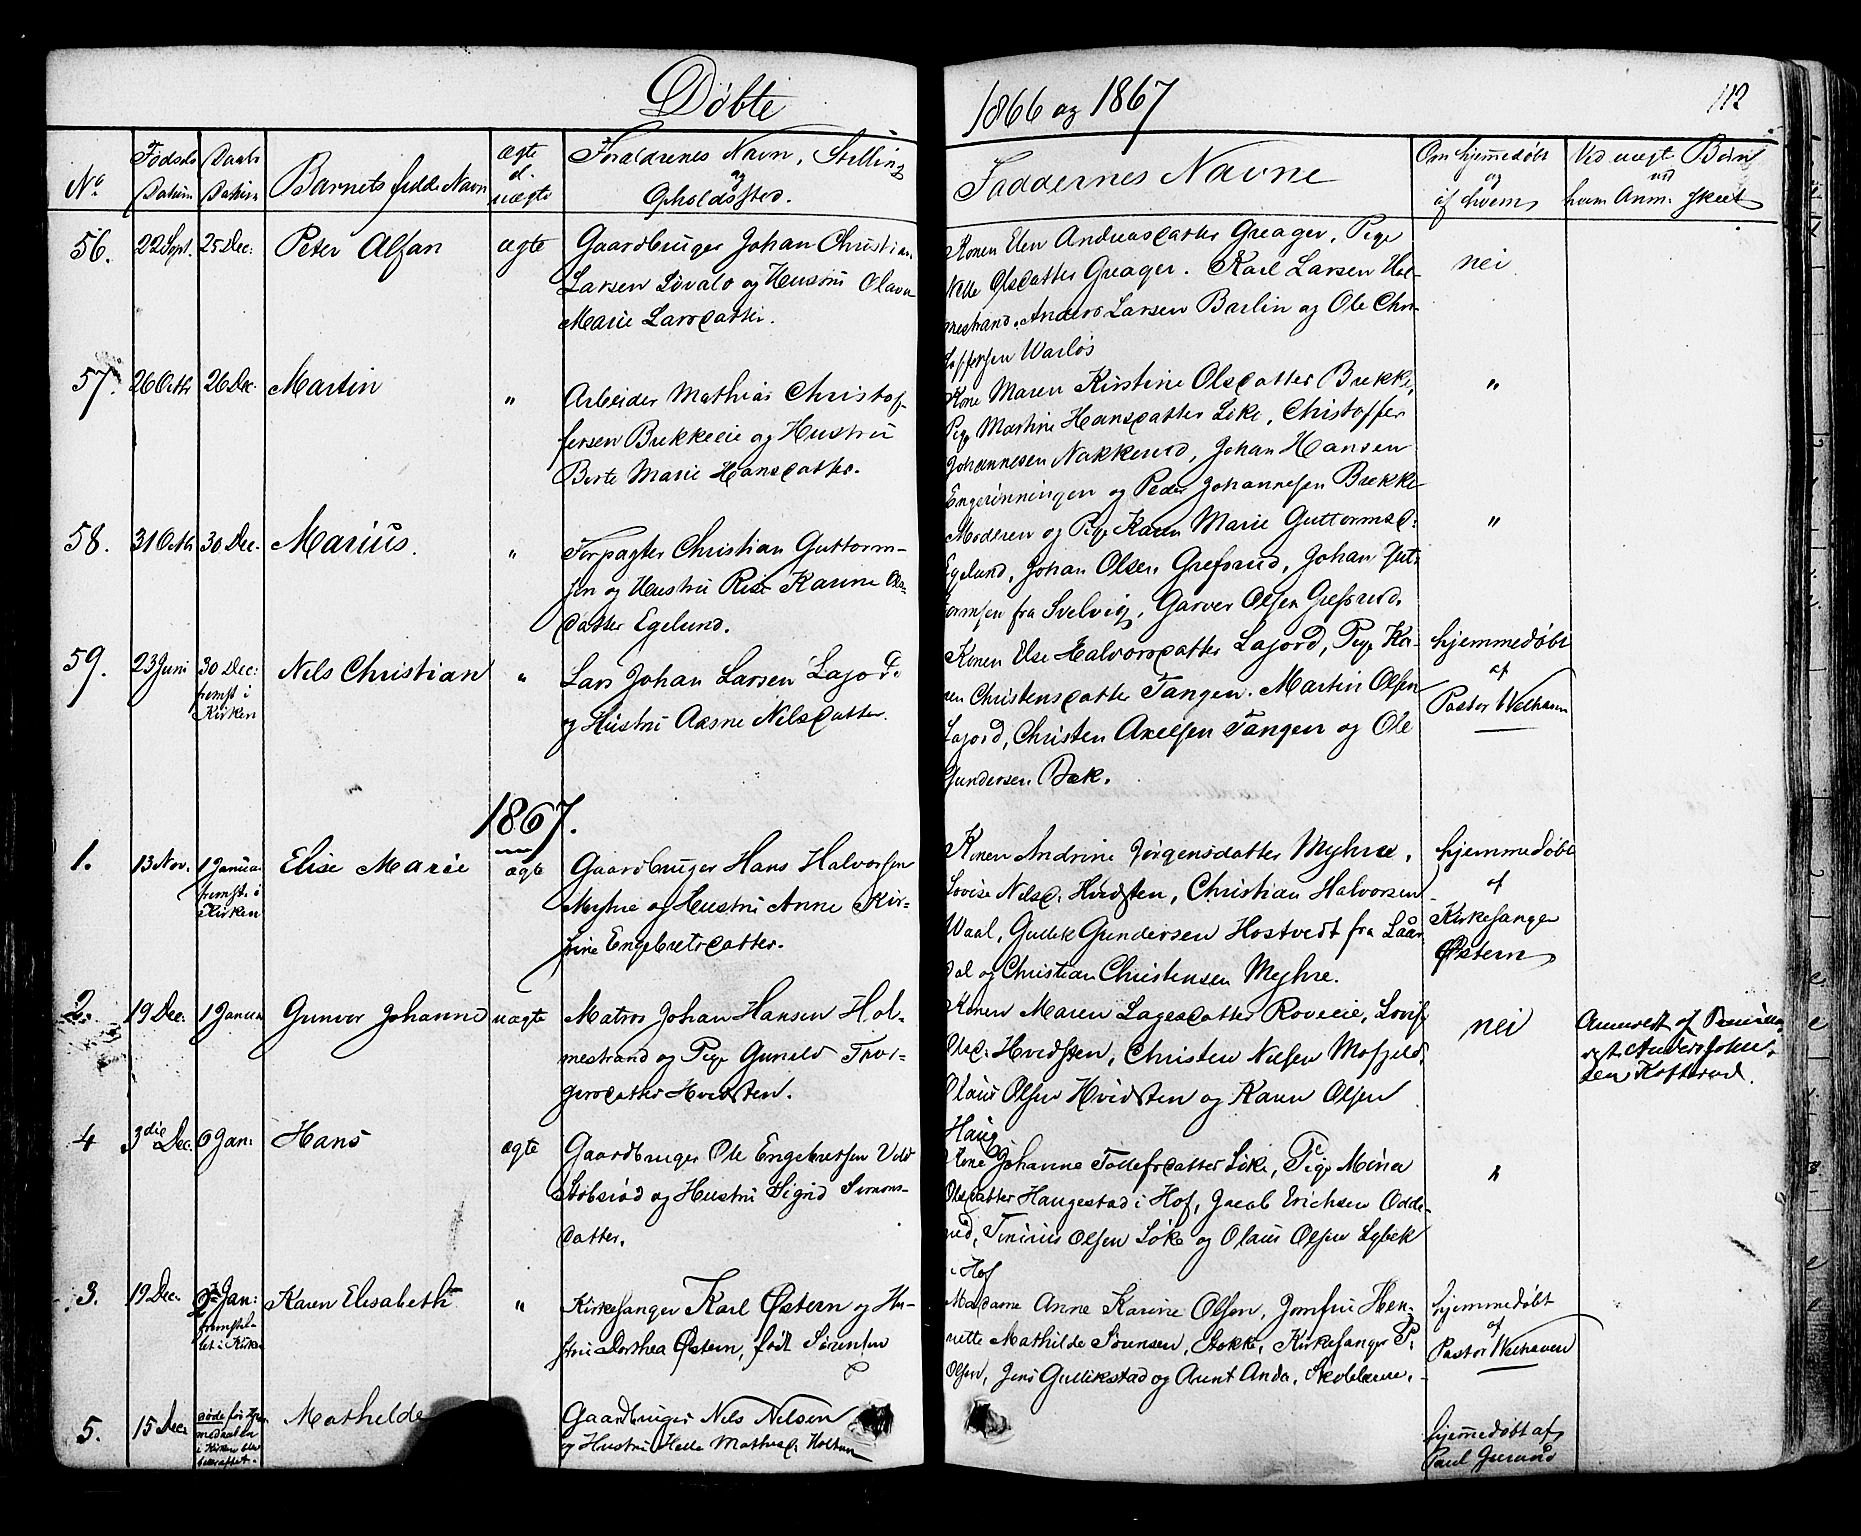 Døbte
1866 og 1867
112
No
Fødsels Datum
Daabs Datum
Barnets fulde Navn
ægte
el.
uægte
Forældrenes Navn, Stilling
og
Opholdssted.
Faddernes Navne
Om hjemmedøbt
og
af hvem
Ved uægt Børn
ved
hvem Anm. skeet
56.
22 Sept.
25 Dec:
Peter Alfan
ægte
Gaardbruger Johan Christian
Larsen Løvalo og Hustru Olava
Marie Larsdatter.
Konen Elen Andreasdatter Greager, Pige
Nelle Olsdatter Greager. Karl Larsen Hol-
mestrand. Anders Larsen Barlin og Ole Chri-
stoffersen Warløs
nei
57.
26 Octbr
26 Dec:
Martin
"
Arbeider Mathias Christof-
fersen Brekkeeie og Hustru
Berte Marie Hansdatter.
Kone Maren Kirstine Olsdatter Brekke,
Pige Martine Hansdatter Løke, Christoffer
Johannesen Nakkerud, Johan Hansen
og Peder Johannesen Brekke
"
58.
31 Octbr
30 Dec.
Marius.
"
Forpagter Christian Guttorm-
sen og Hustru Karine
datter Egelund.
Moderen og Pige Karen Marie Guttormsd:
Egelund, Johan Olsen Grefsrud, Johan Gut-
tormsen fra Svelvig, Garver Olsen Grefsrud.
"
59.
23 Juni
30 Dec:
fremst i
Kirken
Nils Christian
"
Lars Johan Larsen Lajord.
og Hustru Aasne Nilsdatter.
Konen Else Halvorsdatter Lajord, Pige Ka-
ren Christensdatter Tangen. Martin Olsen
Lajord, Christen Axelsen Tangen og Ole
Gundersen Bæk.
hjemmedøbt
af
Pastor Welhaven
1867.
1.
13 Nov.
1 Januar
fremst. i
Kirken
Elise Marie
ægte
Gaardbruger Hans Halvorsen
Myhre og Hustru Anne Kir-
stine Engebretsdatter.
Konen Andrine Jørgensdatter Myhre,
Lovise Nilsd. Hvidsten, Christian Halvorsen
Waal, Gullik Gundersen Hostvedt fra Laur-
dal og Christian Christensen Myhre.
hjemmedøbt
af
Kirkesanger
Østern
2.
19 Dec.
1 Januar
Gunver Johanne
uægte
Matros Johan Hansen Hol-
mestrand og Pige Gunild Thor-
gersdatter Hvidsten.
Konen Maren Lagesdatter Roveeie, Lovise
Olsd. Hvidsten, Christen Nilsen Mofjeld,
Olaus Olsen Hvidsten og Karen Olsen
Haug
nei
Anmeldt af
Anders John-
sen Kofterud.
4
3die Dec.
6 Jan:
Hans
ægte
Gaardbruger Ole Engebretsen
Støbsrød og Hustru Sigrid Simons-
datter.
Kone Johanne Tollefsdatter Løke, Pige Mina
Olsdatter Haugestad i Hof, Jacob Erichsen Odde-
rud, Tinius Olsen Løke og Olaus Olsen Lybek
i Hof
"
3.
19 Dec.
Jan:
fremstil-
let i Kirken
Karen Elisabeth
"
Kirkesanger Karl Østern og Hu-
stru Dorthea Østern, født Sørensen
Madame Anne Karine Olsen, Jomfru Hen-
riette Mathilde Sørensen, Stokke, Kirkesanger P.
Olsen, Jens Gullikstad og Arent Anda, Skolelærere.
hjemmedøbt
af
Pastor Welhaven
5.
15 Dec.
døde før
i Kirken blev
bekræftet.
Mathilde
Gaardbruger Nils Nilsen
og Hustru Helle Mathisd. Holtan
hjemmedøbt af
Paul